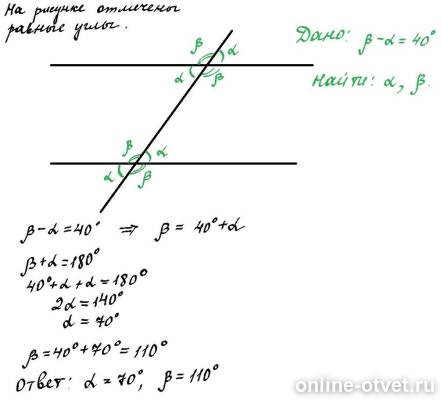 На рисунке отмечены
равные углы.
Дано: β-α=40°
Найти: α, β.
β α
α β
β α
α β
β-α=40° ⇒ β= 40°+α
β+α=180°
40°+α+α=180°
2α=140°
α=70°
β=40°+70°=110°
Ответ: α=70°, β=110°
online-otvet.ru